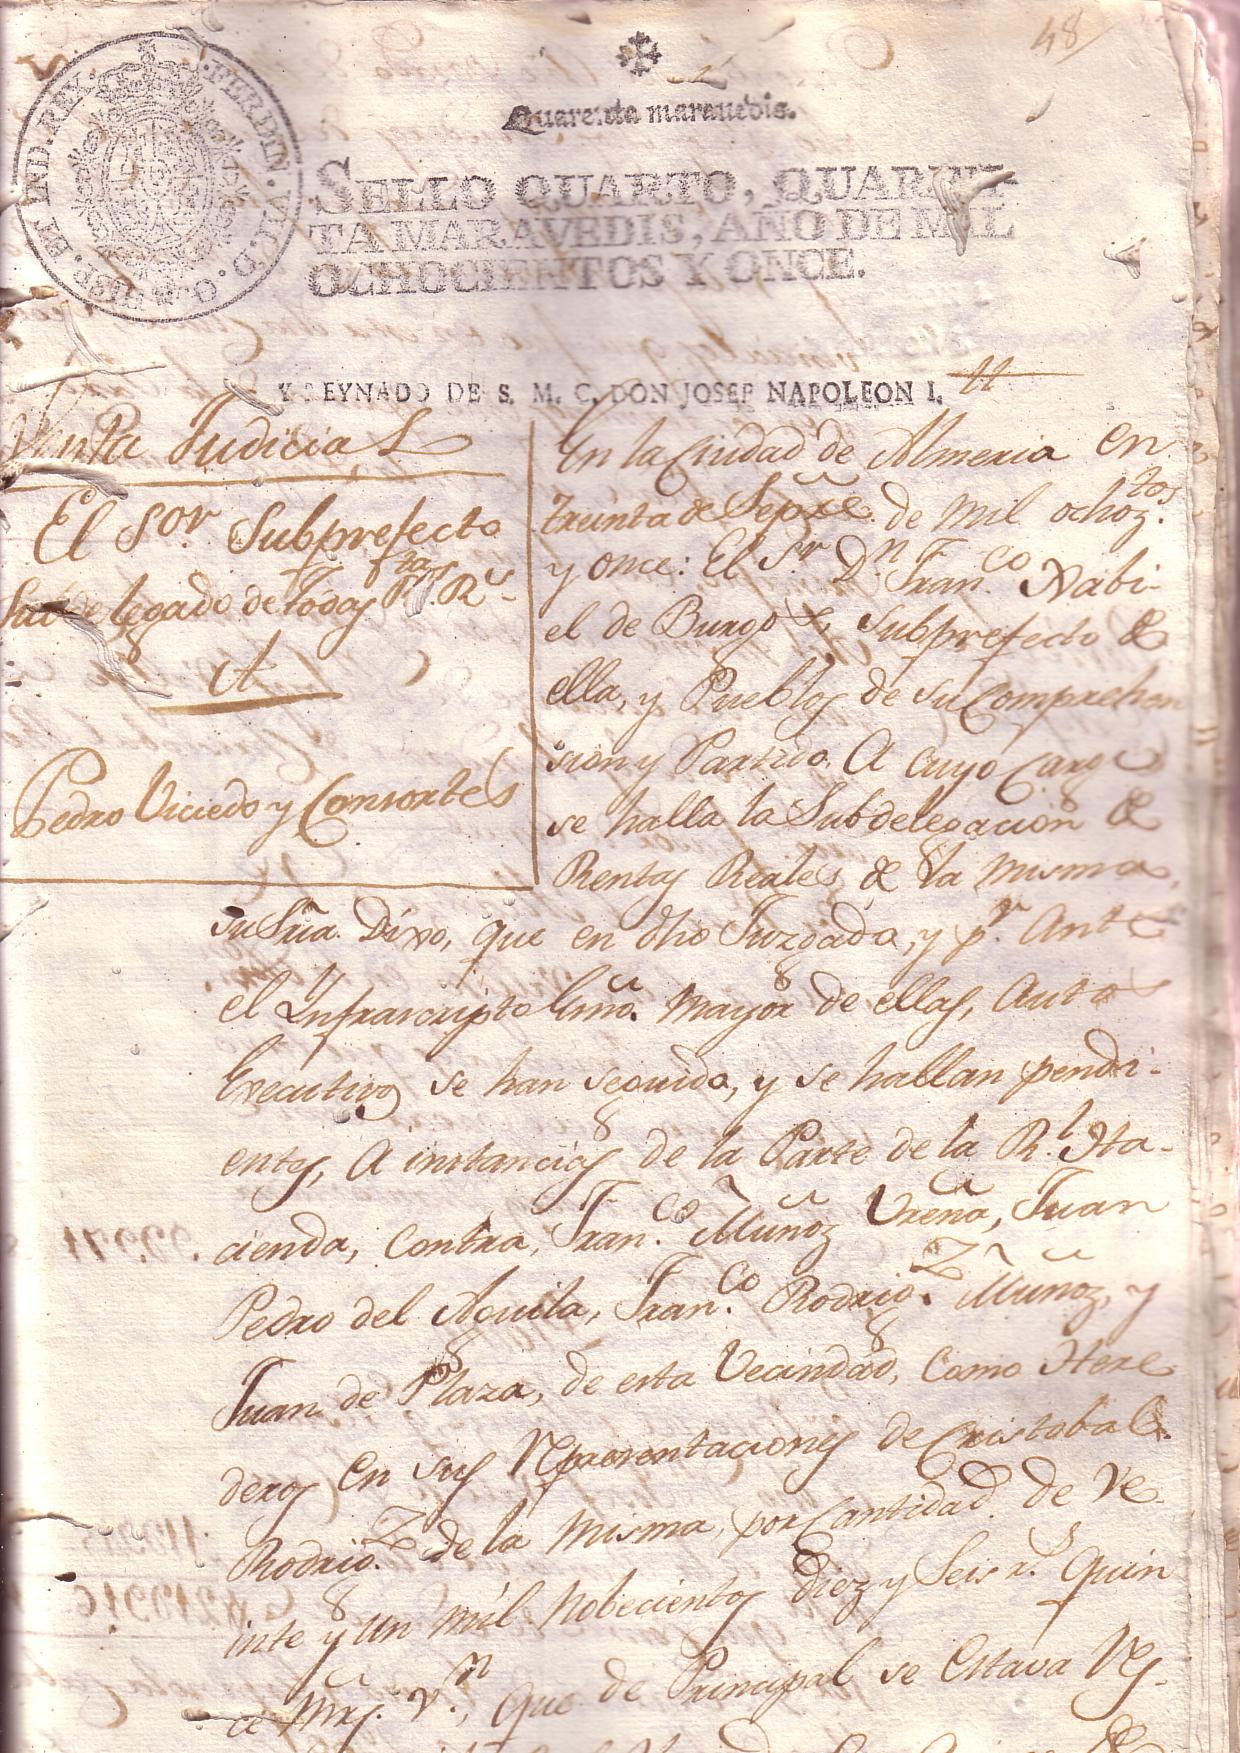 48
Quarenta maravedis.
HISP. ET IND. REX. FERDIN. VII. D. G.
SELLO QUARTO, QUAREN-
TA MARAVEDIS, AÑO DE MIL
OCHOCIENTOS Y ONCE.
Y REYNADO DE S. M. C. DON JOSEF NAPOLEON I.
Venta Judicial
El Sor Subprefecto
Subdelegado de todas Rtas Rs
A
Pedro Viciedo y Consortes
En la Ciudad de Almeria en
treinta de Sepre. de mil ochoz.tos
y once: El Sr Dn Fran.co Xabi-
el de Burgos, Subprefecto de
ella, y Pueblos de su Comprehen
sion y Partido. A cuyo Cargo
se halla la Subdelegacion de
Rentas Reales de la misma,
su Sria. Dixo, que en dho Juzgado, y pr. Ante
el Infrascripto Esno. Mayor de ellas, Autos
Executivos se han seguido, y se hallan pendi-
entes, A instancias de la Parte de la Rl. Ha-
cienda, Contra, Fran.co Muñoz Ureña, Juan
Pedro del Aguila, Fran.co Rodrig.z Muñoz, y
Juan de Plaza, de esta Vecindad, Como Here
deros en sus Representaciones de Cristobal
Rodrig.z de la misma, por Cantidad de Ve-
inte y un mil Nobecientos Diez y Seis rs. Quin
ce Mrs. v.n, que de Principal se Estava